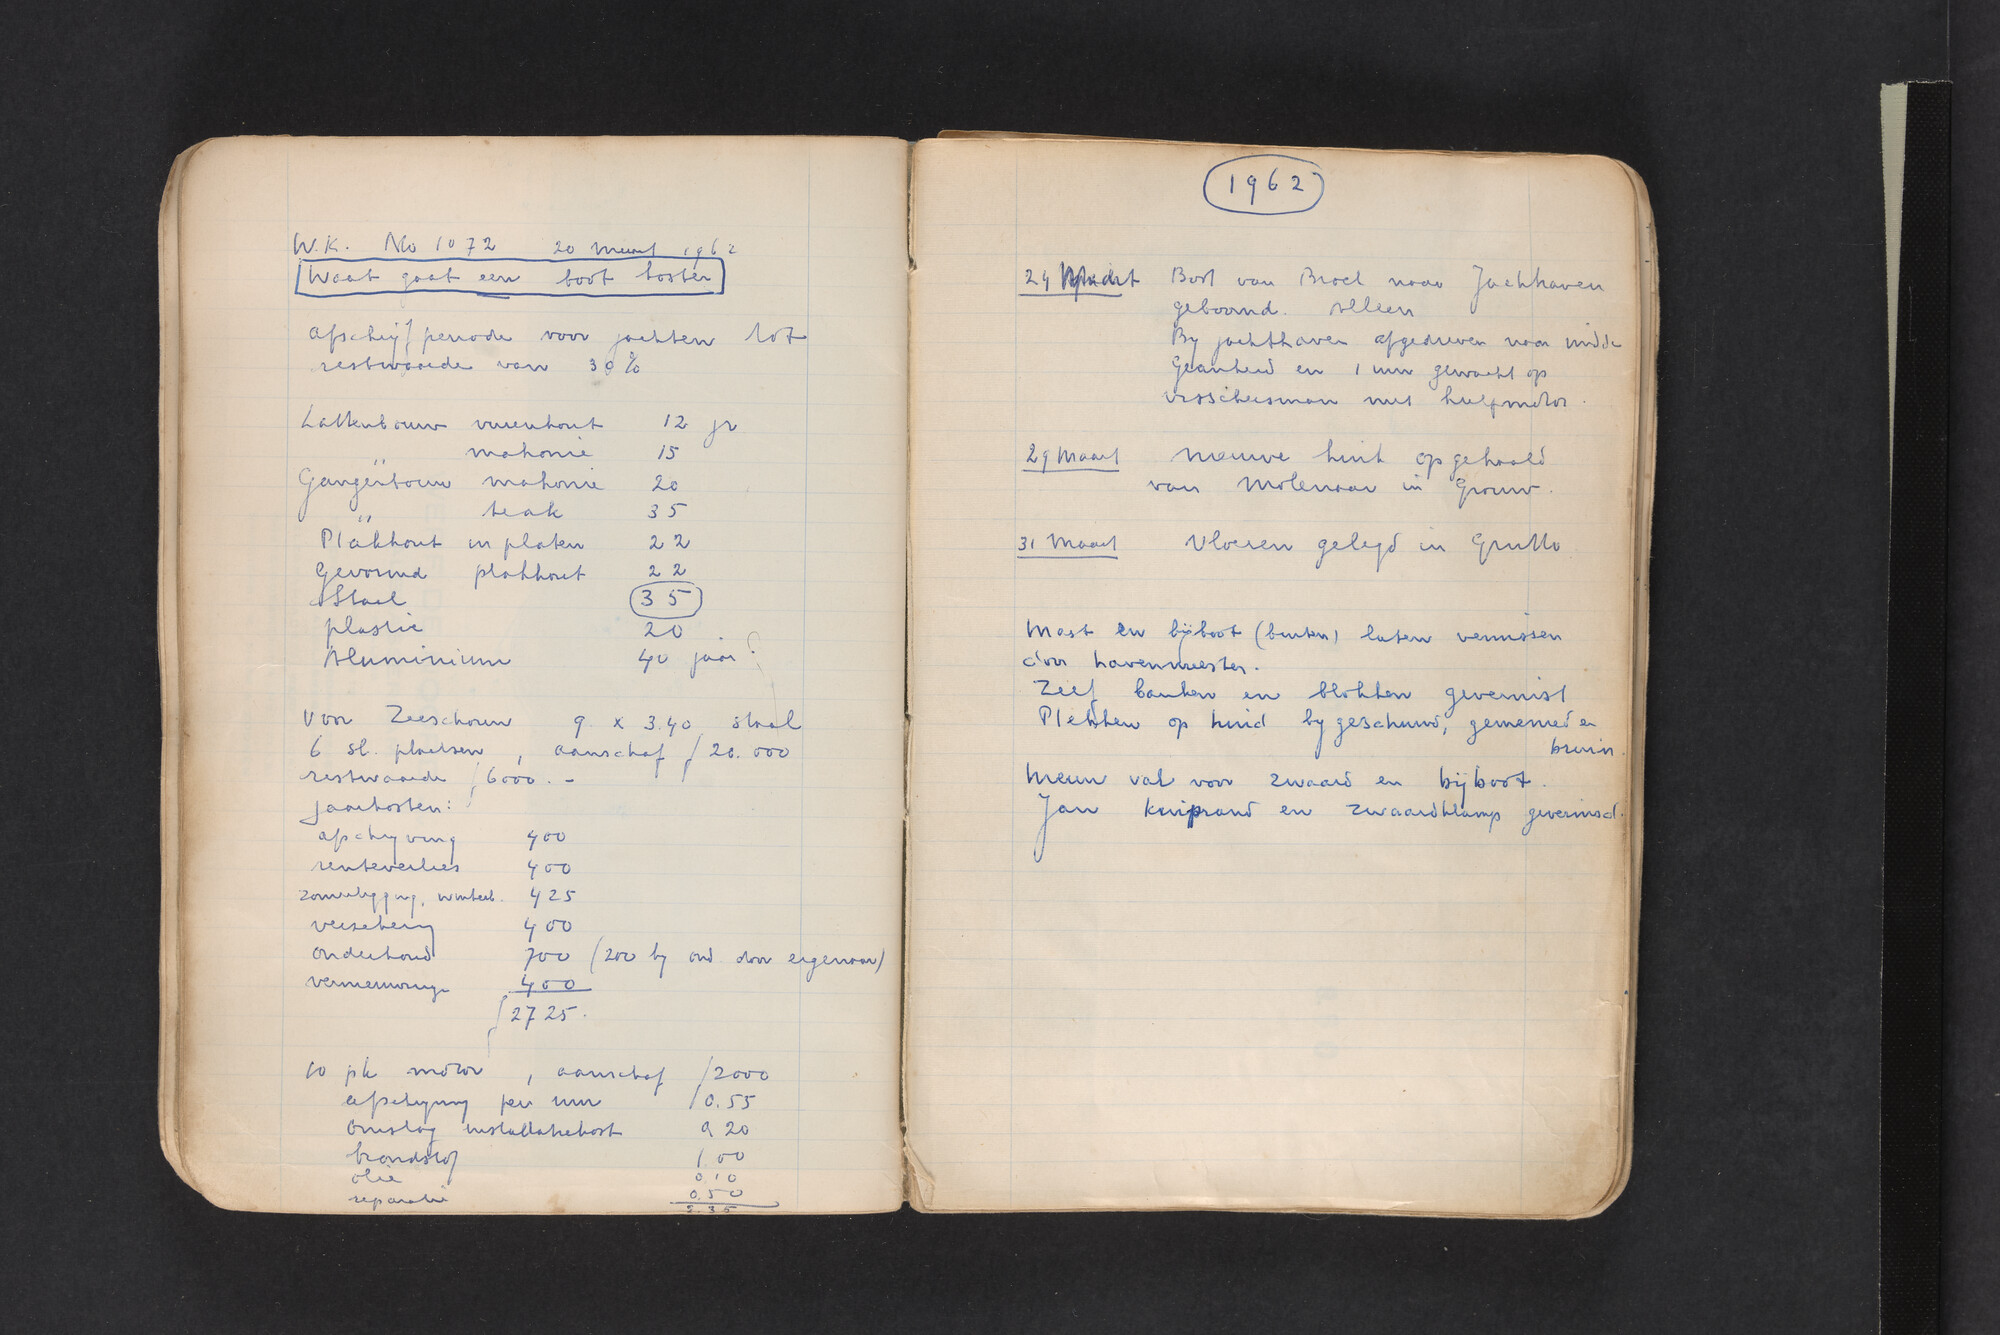 W.K. No 1072 20 Maart 1962
Waat gaat een boot kosten
afschrijfperiode voor jachten tot
restwaarde van 30%
Lattenbouw vurenhout 12 jr
" mahonie 15
Gangenbouw mahonie 20
" teak 35
Plakhout in platen 22
Gevormd plakhout 22
Staal 35
plastic 20
Aluminium 40 jaar?
Voor Zeeschouw 9 x 3.40, staal
6 sl. plaatsen, aanschaf ƒ 20.000
restwaarde ƒ 6000.-
jaarkosten:
afschryving 400
renteverlies 400
zomerligging, winterb. 425
verzekering 400
onderhoud 700 (200 by ond door eigenaar)
vernieuwing 400
ƒ 2725.
10 pk motor, aanschaf ƒ 2000
afschryving per uur ƒ 0.55
omslag installatiekost 0 20
brandstof 1.00
olie 0 10
reparatie 0.50
2.35
1962
24 Maart Boot van Broek naar Jachthaven
geboomd. Alleen
By jachthaven afgedreven naar midde
Geankerd en 1 uur gewacht op
visscherman met hulpmotor.
29 Maart Nieuwe huik opgehaald
van Molenaar in Grouw.
31 Maart Vloeren gelegd in Grutto
Mast en bijboot (buiten) laten vernissen
door havenmeester.
Zelf banken en blokken gevernist
Plekken op huid by geschuurd, gemenied en
bruin.
Nieuw val voor zwaard en bijboot.
Jan kuiprand en zwaardklamp gevernisd.